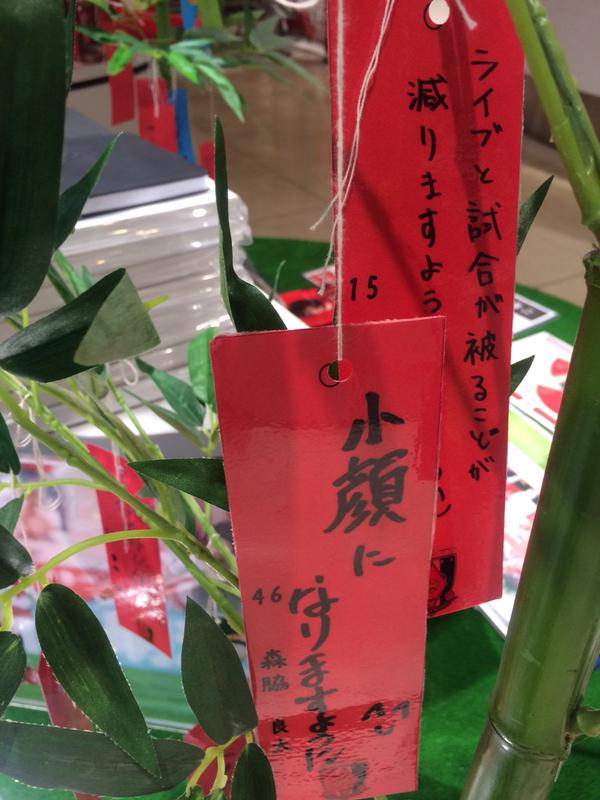 ライブと試合が被ることが
減りますよう
15
小顔に
なりますように
46
森脇
良太